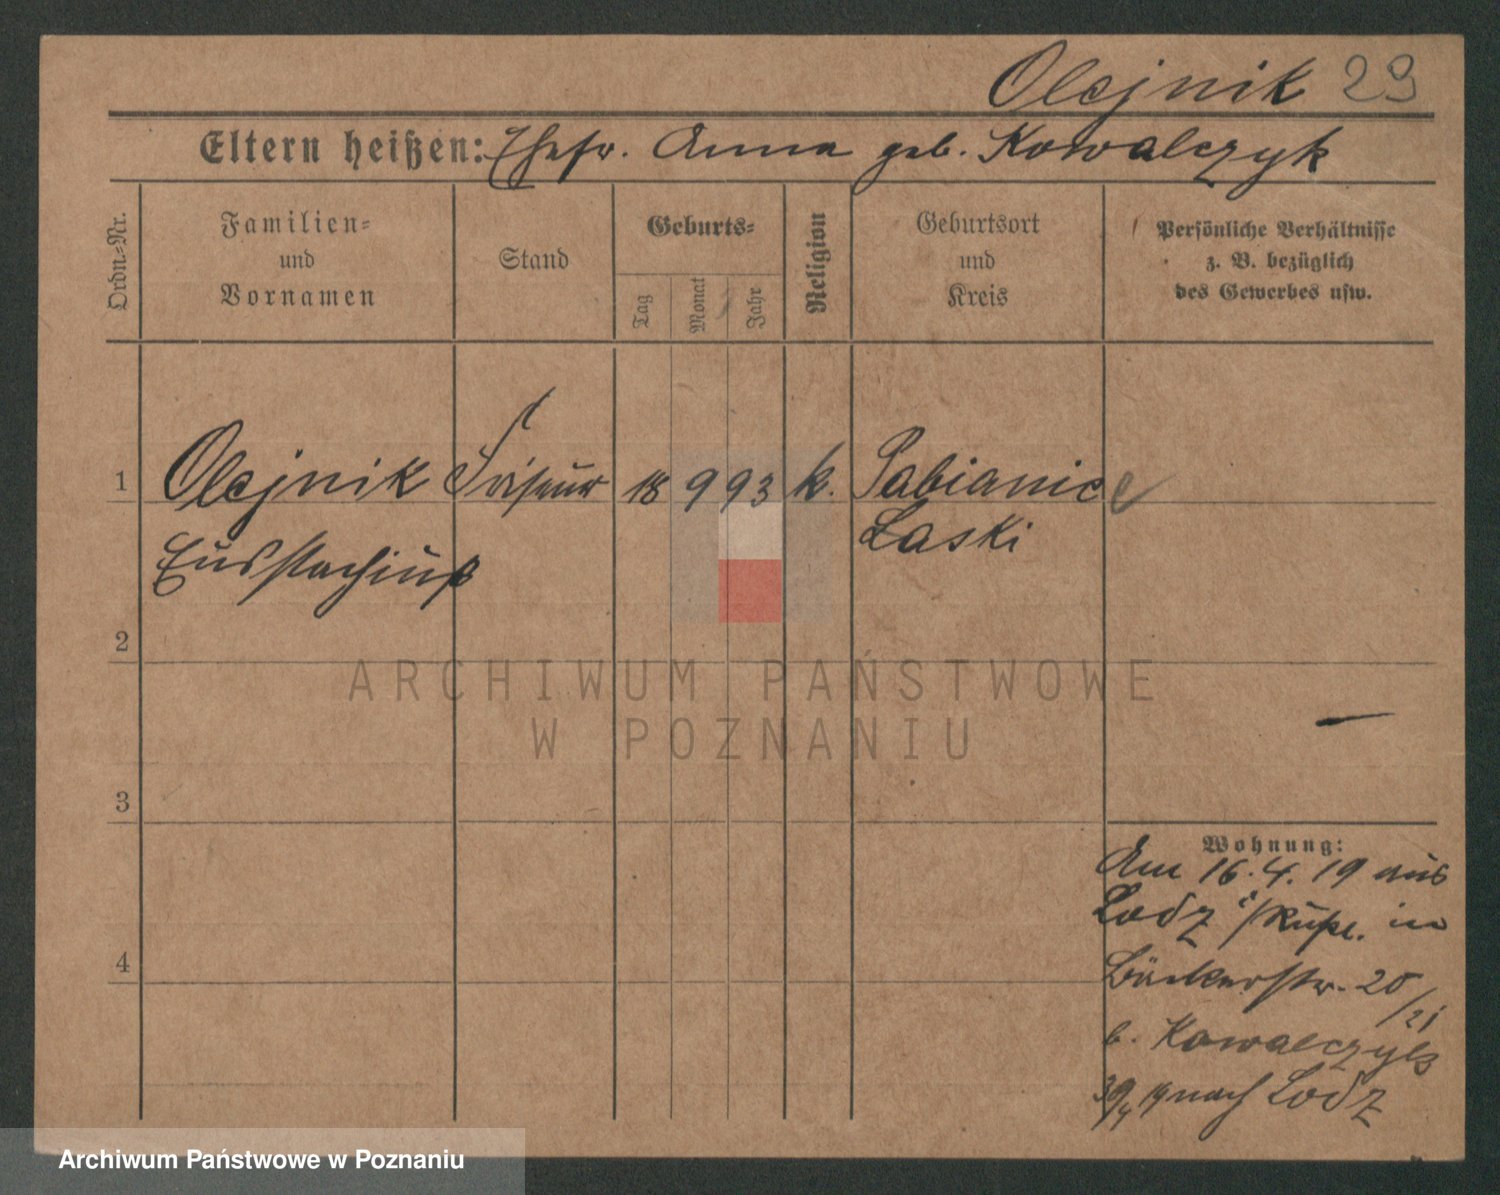 Olejnik 29
Eltern heißen: Ehefr. Anna geb. Kowalczyk
Ordn.-Nr.
Familien-
und
Vornamen
Stand
Geburts-
Tag
Monat
Jahr
Religion
Geburtsort
und
Kreis
Persönliche Verhältnisse
z. B. bezüglich
des Gewerbes usw.
1 Olejnik Friseur 18 9 93 k. Pabianice
Eustachius Laski
2
3
4
ARCHIWUM PAŃSTWOWE
W POZNANIU
Wohnung:
Am 16.4.19 aus
Lodz in
Bäckerstr. 20
/21
b. Kowalczyk
30/4 19 nach Lodz
Archiwum Państwowe w Poznaniu